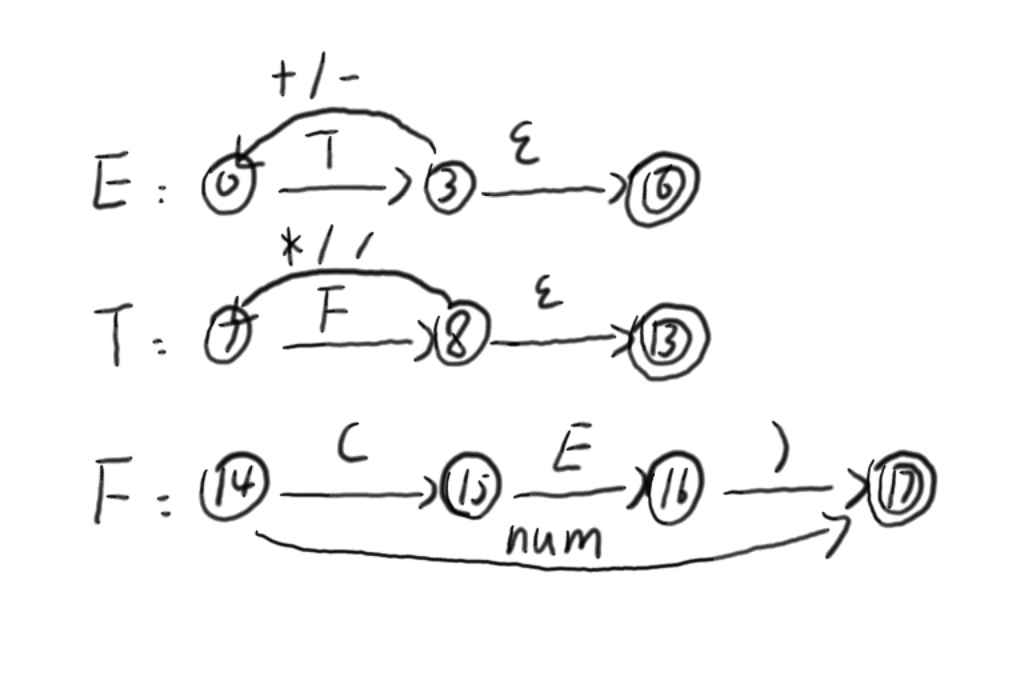 + / -
E : 0 T 3 ε 6
* / /
T : 7 F 8 ε 13
F : 14 ( 15 E 16 ) 17
num